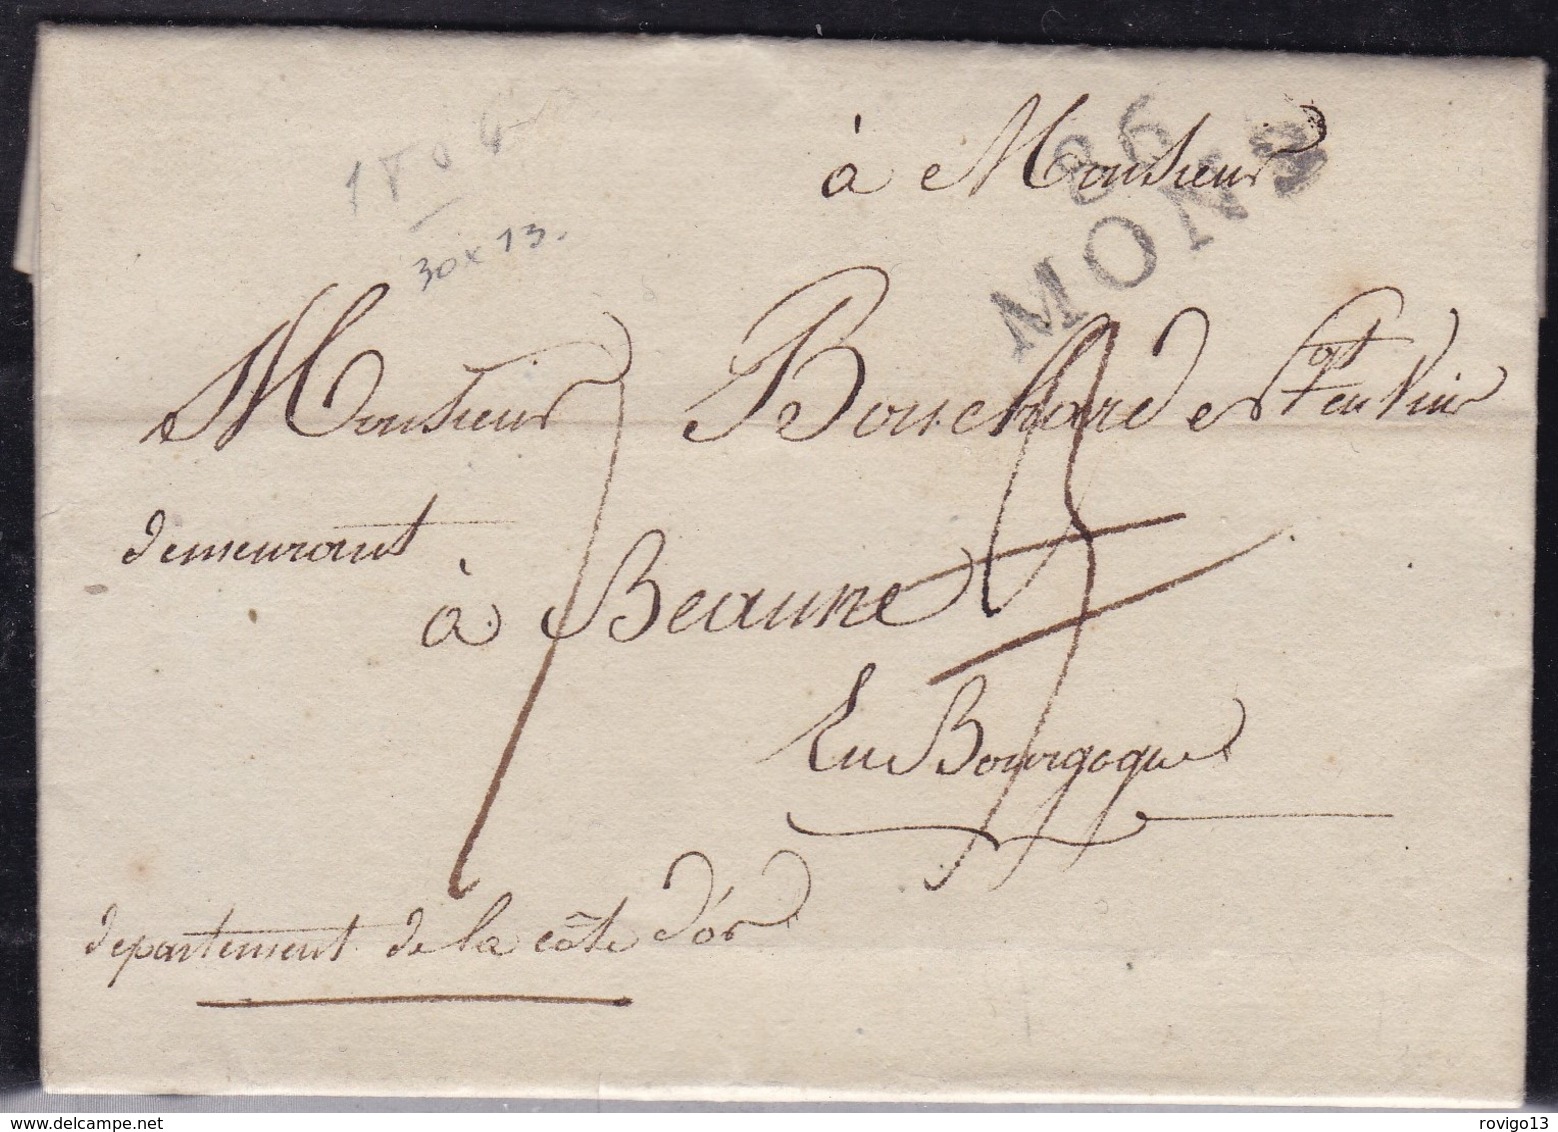 à Monsieur
86
MONS
1804
30x13.
Monsieur Bouchard et en Vin
demeurant
à Beaune
En Bourgogne
departement de la côte d'or
www.delcampe.net
rovigo13